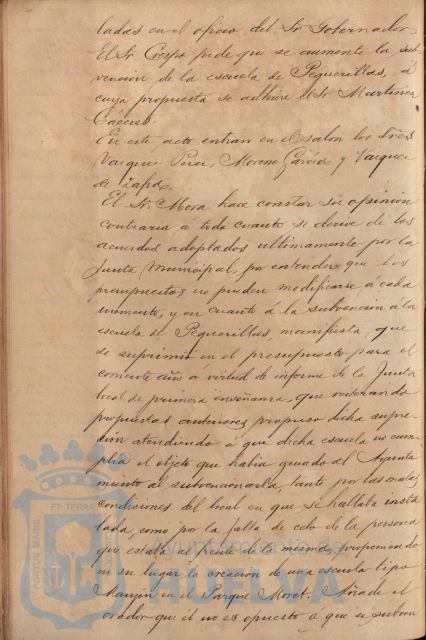 ladas en el oficio del Sr Gobernador.
El Sr Crespo pide que se aumente la sub-
vención de la escuela de Peguerillas, á
cuya propuesta se adhiere el Sr Martinez
Cáceres.
En este acto entran en el salon los Sres
Vazquez Perez, Moreno García y Vazquez
de Zafra.
El Sr. Mora hace constar su opinión
contraria a todo cuanto se derive de los
acuerdos adoptados ultimamente por la
Junta Municipal, por entender que los
presupuestos no pueden modificarse á cada
momento, y en cuanto á la subvención á la
escuela de Peguerillas, manifiesta, que
se suprimió en el presupuesto para el
corriente año á virtud de informe de la Junta
local de primera enseñanza, que reiterando
propuestas anteriores propuso dicha supre-
sion atendiendo á que dicha escuela no cum-
plia el objeto que habia guiado al Ayunta-
miento al subvencionarla, tanto por las malas
condiciones del local en que se hallaba insta-
lada, como por la falta de celo de la persona
que estaba al frente de la misma, proponiendo
en su lugar la creacion de una escuela tipo
Manjón en el Parque Moret. Añade el
orador que él no es opuesto á que se suban
PORTUS MARIS ET TERRAE
Ayuntamiento de
HUELVA